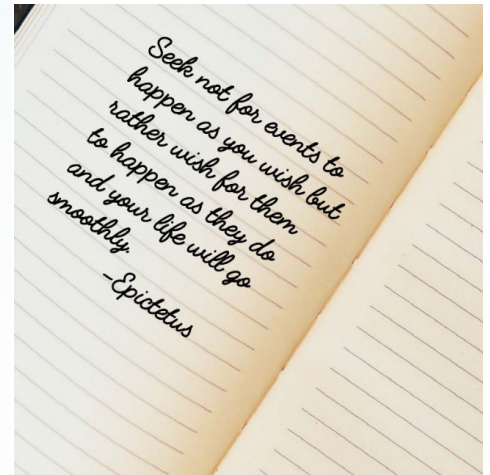 Seek not for events to
happen as you wish but
rather wish for them
to happen as they do
and your life will go
smoothly.
-Epictetus